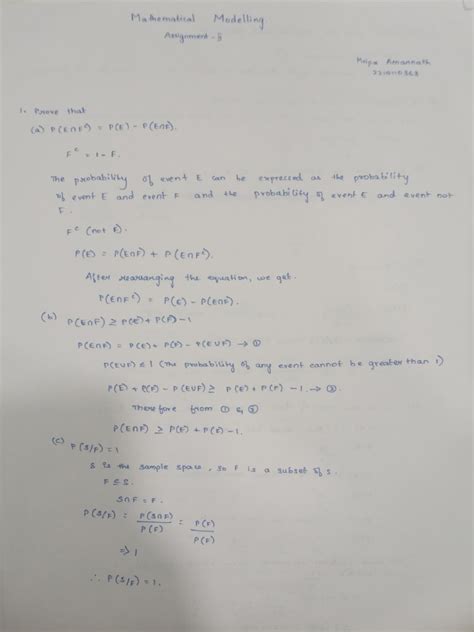 Mathematical Modelling
Assignment - 3
Amarnath
1. Prove that
(a) P(E∩Fᶜ) = P(E) - P(E∩F).
Fᶜ = 1 - F.
The probability of event E can be expressed as the probability
of event E and event F and the probability of event E and event not
F.
Fᶜ (not E).
P(E) = P(E∩F) + P(E∩Fᶜ).
After rearranging the equation, we get.
P(E∩Fᶜ) = P(E) - P(E∩F).
(b) P(E∩F) ≥ P(E) + P(F) - 1
P(E∩F) = P(E) + P(F) - P(E∪F) → ①
P(E∪F) ≤ 1 (The probability of any event cannot be greater than 1)
P(E) + P(F) - P(E∪F) ≥ P(E) + P(F) - 1 → ②
Therefore from ① & ②
P(E∩F) ≥ P(E) + P(F) - 1.
(c) P(S/F) = 1
S is the sample space, so F is a subset of S.
F ≤ S.
S∩F = F.
P(S/F) = P(S∩F)/P(F) = P(F)/P(F)
⇒ 1
∴ P(S/F) = 1.